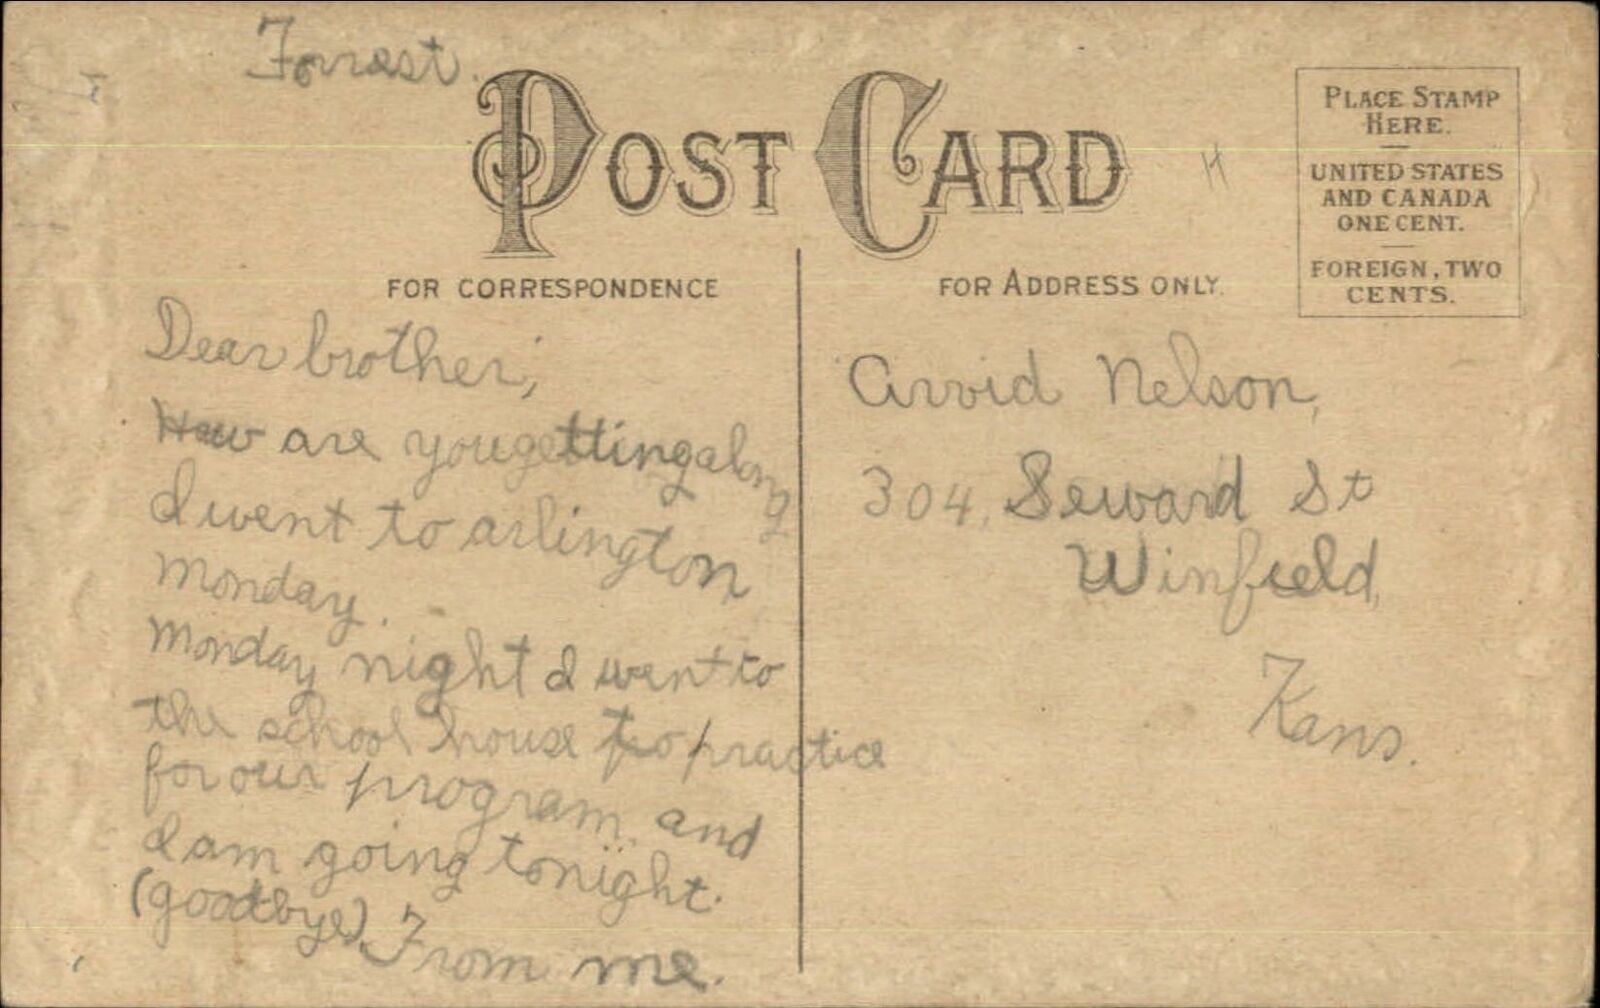 Forrest.
POST CARD
H
PLACE STAMP
HERE.
UNITED STATES
AND CANADA
ONE CENT.
FOREIGN, TWO
CENTS.
FOR CORRESPONDENCE
FOR ADDRESS ONLY.
Dear brother;
How are you getting along
I went to arlington
monday.
monday night I went to
the school house to practice
for our program and
I am going tonight.
(goodbye) From me.
Arvid Nelson,
304, Seward St
Winfield,
Kans.